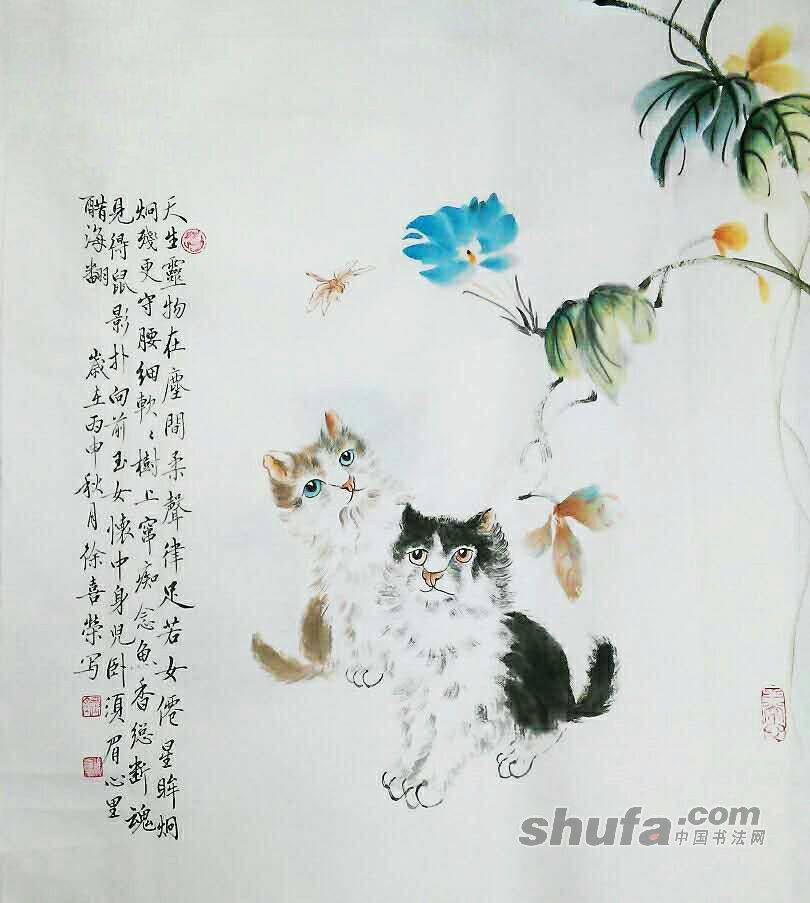 天生靈物在塵間柔聲律足若女僊星眸炯
炯殘更守腰細軟々樹上窜痴念魚香总断魂
見得鼠影扑向前玉女懷中身儿卧須眉心里
醋海翻 歲在丙申秋月徐喜荣写
shufa.com
中国书法网